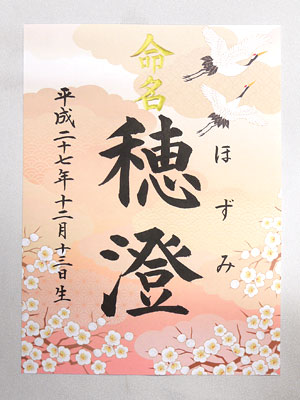 命名
ほずみ
穂澄
平成二十七年十二月十三日生